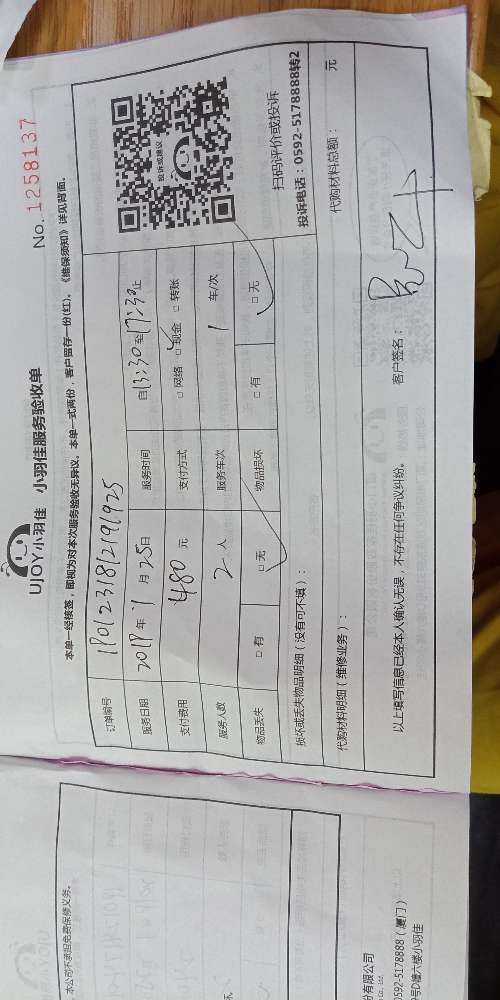 UJOY小羽佳 小羽佳服务验收单
No. 1258137
本单一经核签，即视为对本次服务验收无异议。本单一式两份，客户留存一份(红)。《维保须知》详见背面。
订单编号
服务日期 年 1 月 25 日 服务时间 自 13:30 至 17:30 止
支付费用 480 元 支付方式 □ 网络 □ 现金 □ 转账
服务人数 2 人 服务车次 1 车/次
物品丢失 □ 有 □ 无 物品损坏 □ 有 □ 无
投诉或建议
扫码评价或投诉
投诉电话：0592-5178888转2
损坏或丢失物品明细（没有可不填）：
代购材料明细（维修业务）： 代购材料总额： 元
以上填写信息已经本人确认无误，不存在任何争议纠纷。 客户签名：
本公司不承担免费保修义务。
份有限公司
Co., Ltd.
592-5178888（厦门）
号D幢六楼小羽佳